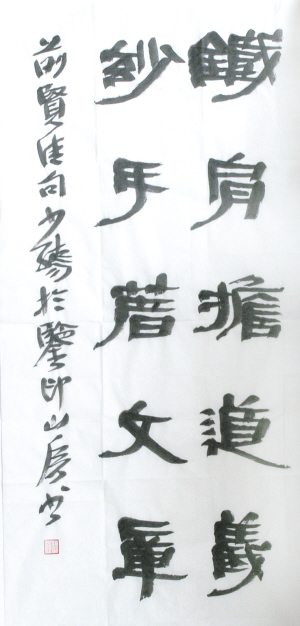 鐵肩擔道義
妙手著文章
前賢佳句少孺於鑒印山房書